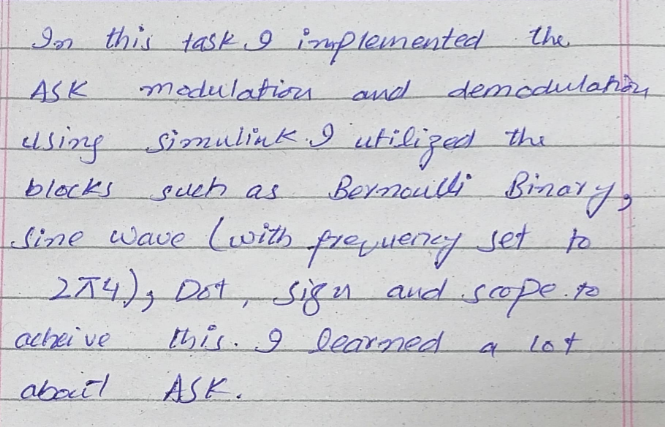 In this task I implemented the
ASK modulation and demodulation
using simulink. I utilized the
blocks such as Bernoulli Binary,
Sine wave (with frequency set to
2π4), Dot, sign and scope to
acheive this. I learned a lot
about ASK.